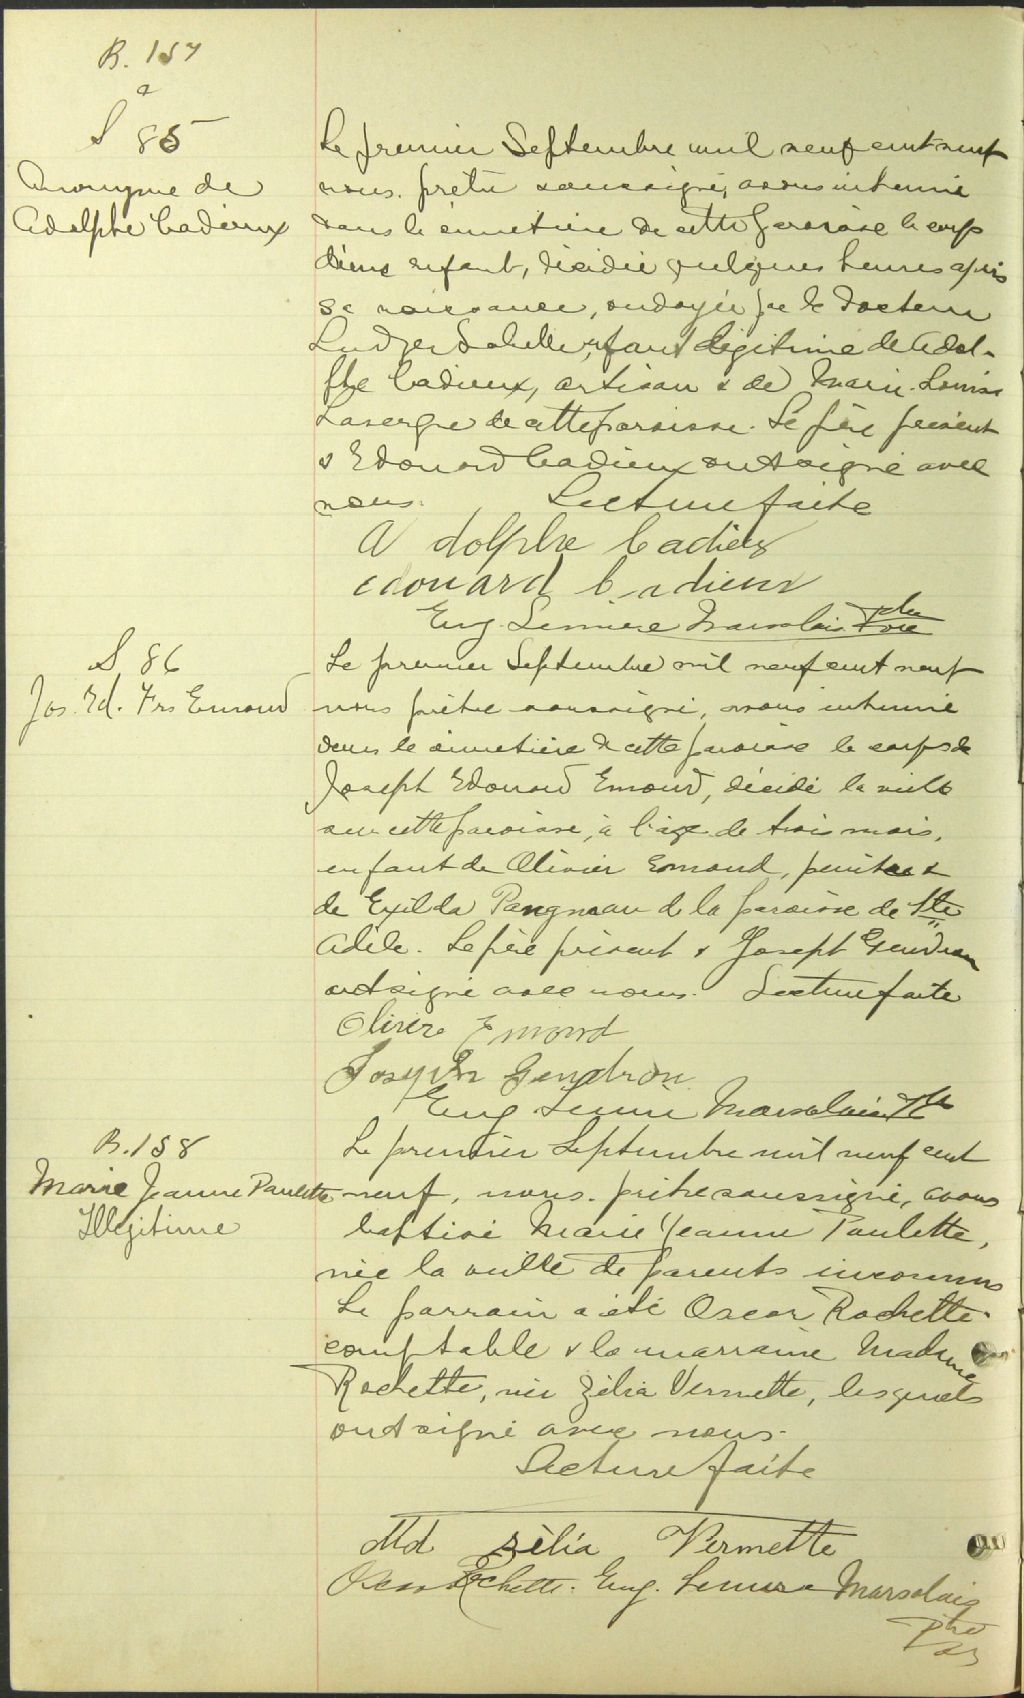 B. 157
a
S 85
Anonyme de
Adolphe Cadieux
Le premier Septembre mil neuf cent neuf
nous prêtre soussigné, avons inhumé
dans le cimetière de cette paroisse le corps
d'une enfant, décédée quelques heures après
sa naissance, ondoyée par le docteur
Ludger enfant légitime de Adol-
phe Cadieux, artisan & de Marie-Louise
Lavergne de cette paroisse. Le père présent
& Edouard Cadieux ont signé avec
nous. Lecture faite
Adolphe Cadieux
Edouard Cadieux
Eug. Marsolais Ptre
S 86
Jos. Ed. Frs Emond
Le premier Septembre mil neuf cent neuf
nous prêtre soussigné, avons inhumé
dans le cimetière de cette paroisse le corps de
Joseph Edouard Emond, décédé la veille
sur cette paroisse, à l'âge de trois mois,
enfant de Olivier Emond, peintre &
de Exilda Pangman de la paroisse de Ste
Adèle. Le père présent & Joseph Gendron
ont signé avec nous. Lecture faite
Olivier Emond
Joseph Gendron
Eug Marsolais Ptre
B. 158
Marie Jeanne Paulette
Illégitime
Le premier Septembre mil neuf cent
neuf, nous prêtre soussigné, avons
baptisé Marie Jeanne Paulette,
née la veille de parents inconnus
Le parrain a été Oscar Rochette
comptable & la marraine Madame
Rochette, née Zélia Vermette, lesquels
ont signé avec nous.
Lecture faite
Md Zélia Vermette
Oscar Rochette. Eug. Marsolais
Ptre